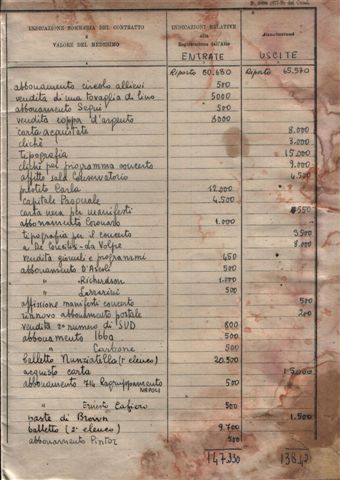 INDICAZIONE SOMMARIA DEL CONTRATTO
E
VALORE DEL MEDESIMO
INDICAZIONI RELATIVE
alla
Registrazione dell'Atto
Annotazioni
ENTRATE USCITE
Riporto 60.680 Riporto 65.570
abbonamento circolo allievi 500
vendita di una tovaglia di lino 5000
abbonamento Segui 500
vendita coppa d'argento 6000
carta acquistata 8.000
clichè 3.000
tipografia 15.000
clichè per programma concerto 9.000
affitto sala Conservatorio 4.500
prestito Carla 12.000
capitale Pasquale 4.500
carta vera per manifesti 550
abbonamento Coronado 1.000
tipografia per il concerto 3500
a De -da Volpe 8.000
vendita giornali e programmi 450
abbonamento D'Ascoli 500
" Richerdson 1.000
" Lazzarini 500
affissione manifesti concerto 500
rinnovo abbonamento postale 200
vendita 2° numero di SUD 800
abbonamento 500
" Carbone 500
balletto Nunziatella (1° elenco) 20.500
acquisto carta 15.000
abbonamento 714 Ragruppamento 500
NAPOLI
" Ernesto Cafiero 500
paste di Brown 1.500
balletto (2° elenco) 9.700
abbonamento Pintor 500